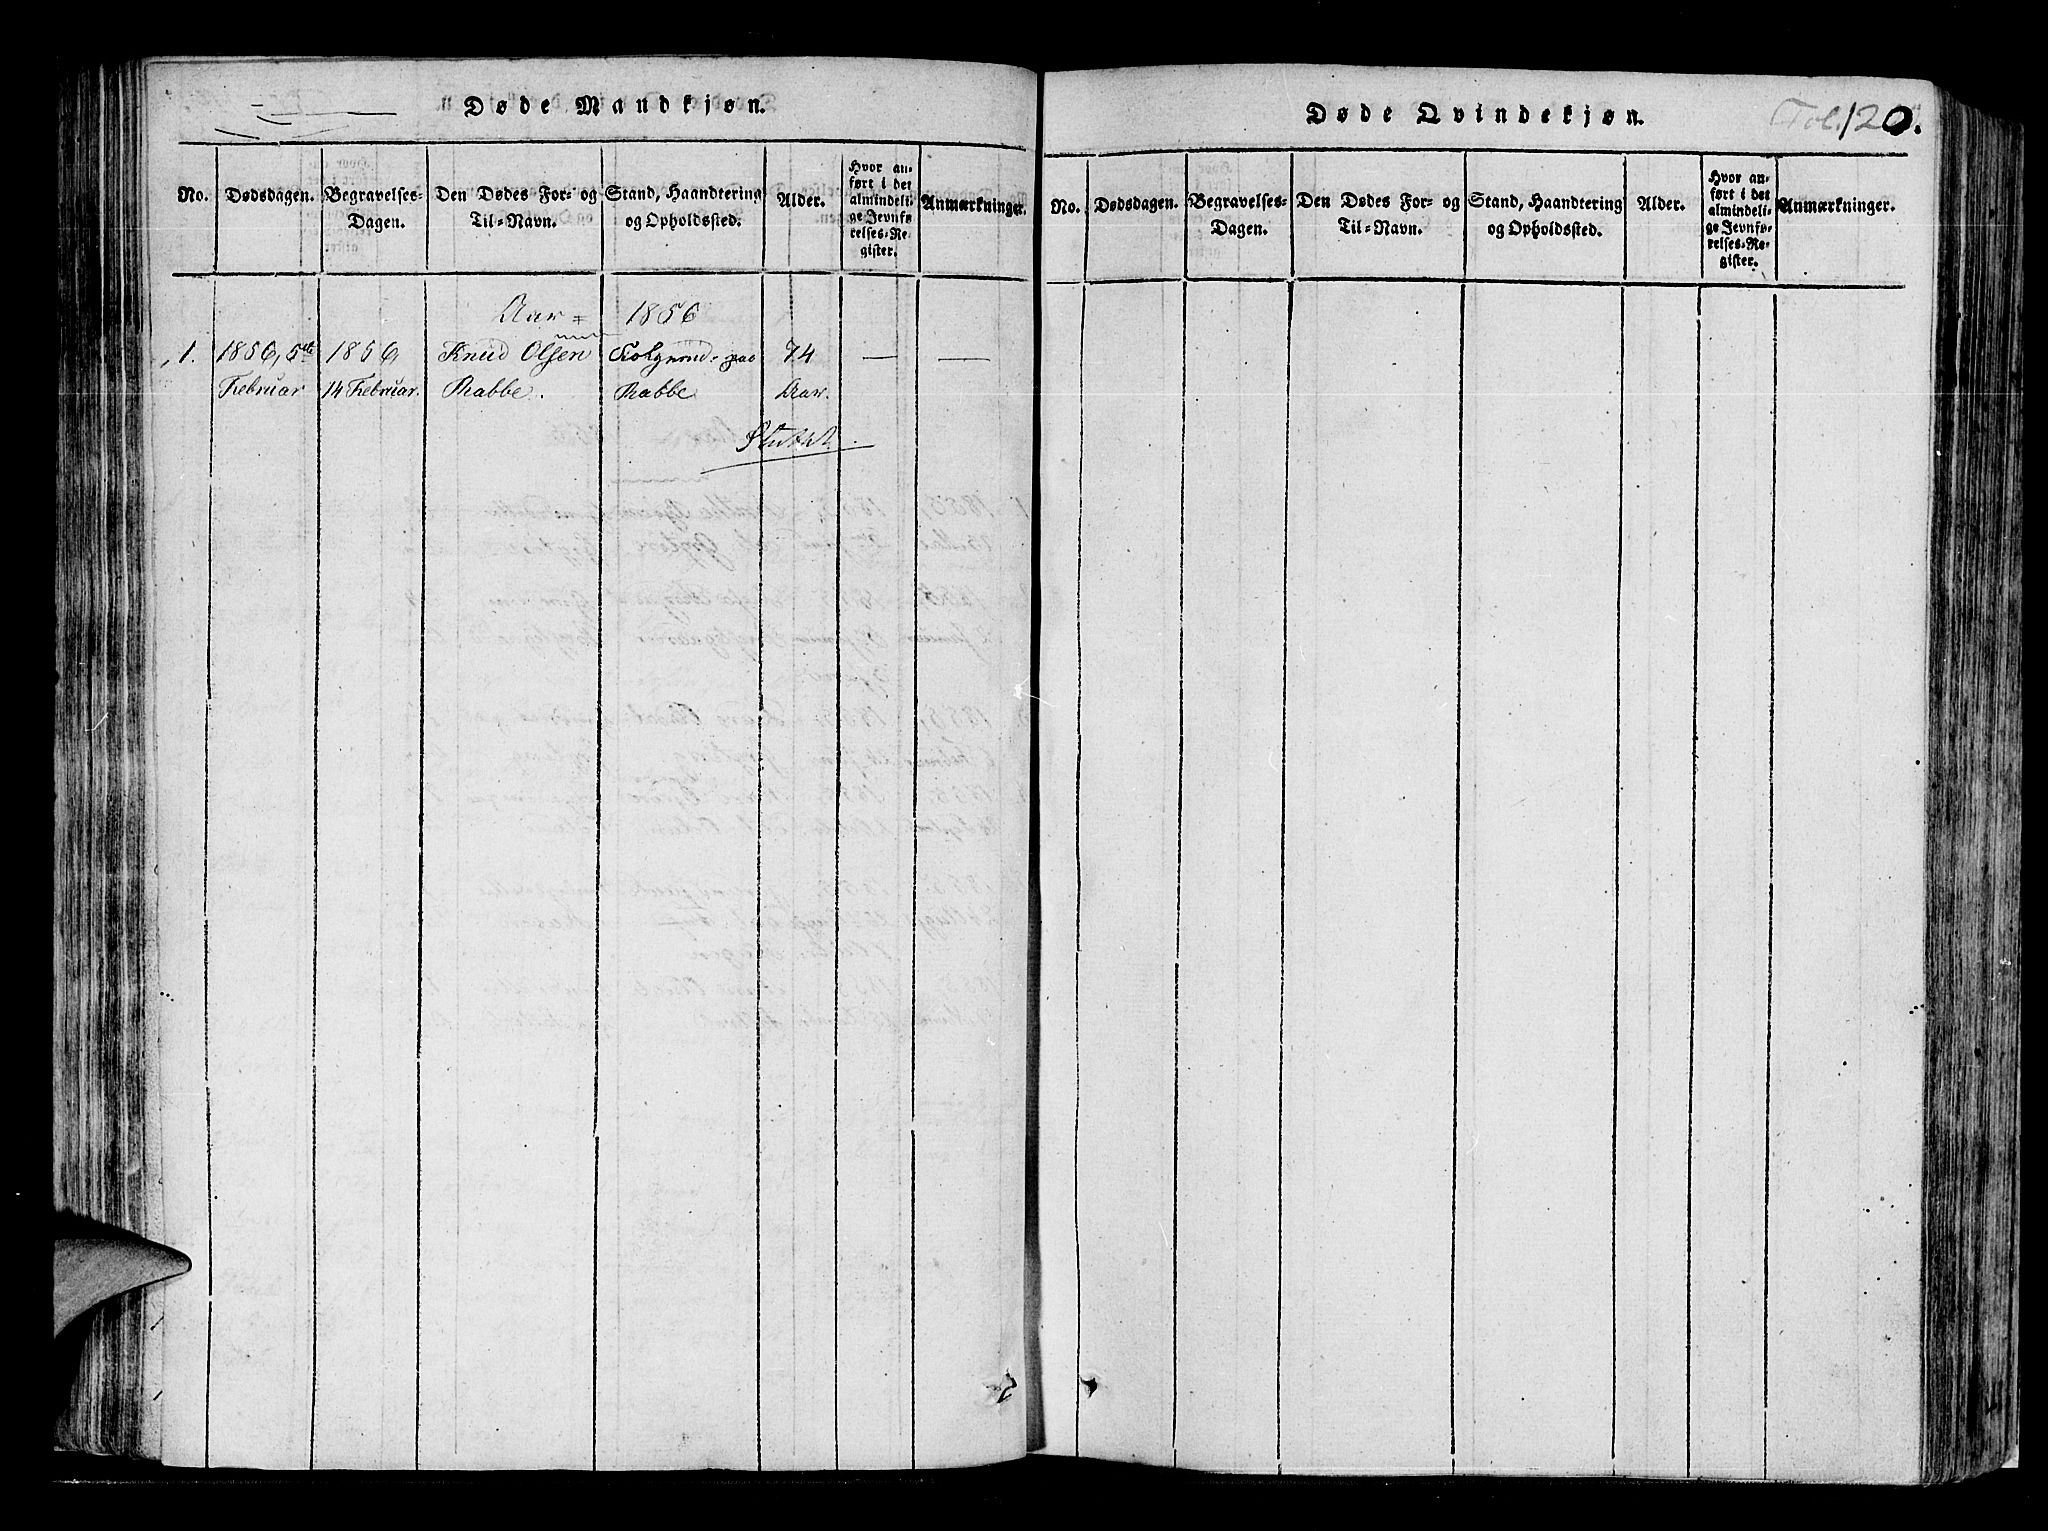 Døde Mandkjøn.
No.
Dødsdagen.
Begravelses-
Dagen.
Den Dødes For- og
Til-Navn.
Stand, Haandtering
og Opholdssted.
Alder.
Hvor an-
ført i det
almindeli-
ge Jevnfø-
relses-Re-
gister.
Anmærkninger.
Aar = 1856
1. 1856, 5te 1856, Knud Olsen paa 74 — —
Februar 14 Februar. Rabbe. Rabbe Aar.
Sluttet.
Døde Qvindekjøn.
Fol. 120.
No.
Dødsdagen.
Begravelses-
Dagen.
Den Dødes For- og
Til-Navn.
Stand, Haandtering
og Opholdssted.
Alder.
Hvor an-
ført i det
almindeli-
ge Jevnfø-
relses-Re-
gister.
Anmærkninger.